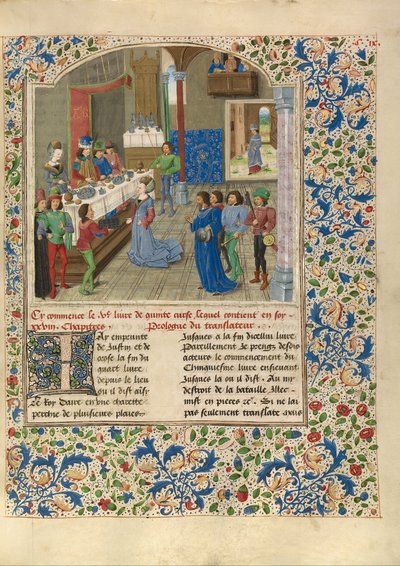 Cy commence le Ve livre de quinte curse, lequel contient en soy
xxviii. Chapitres. Prologue du translateur
Ay emprunte
de Justin et de
orose la fin du
quart livre
depuis le lieu
ou il dist ainsi
Le Roy Daire en une charette
perchie de plusieurs plaies
Jusques a la fin dicellui livre
Pareillement Je prengz desdis
acteurs le commencement du
Chincquiesme livre ensieuant
Jusques la ou il dist. Au
destroit de la bataille
mist en pieces etc. Si ne lai
pas seulement translate